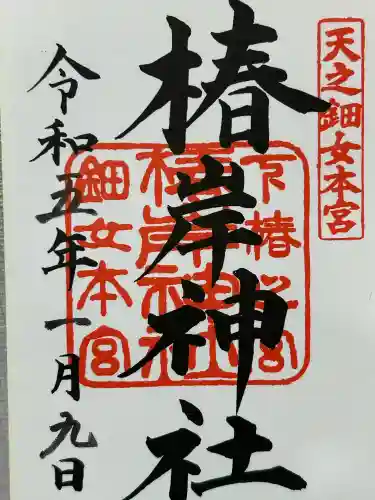 天之鈿女本宮
椿岸神社
下椿
椿岸神社
鈿女本宮
令和五年一月九日